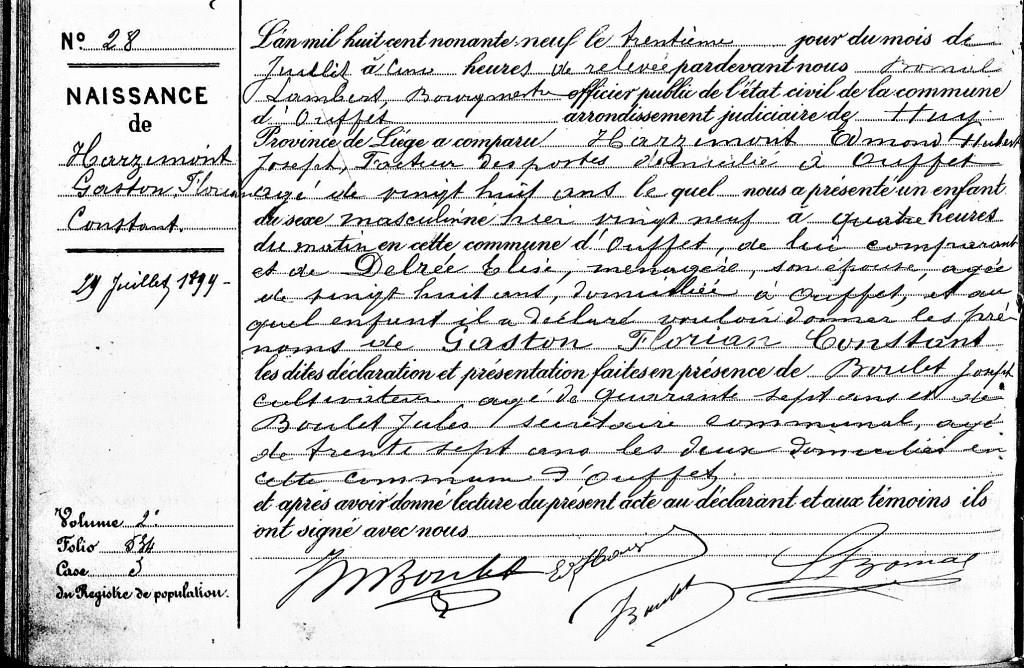 Nº 28
NAISSANCE
de
Harzimont
Gaston Florian
Constant.
29 Juillet 1899 -
Volume 2.
Folio 534
Case 3
du Registre de population.
L'an mil huit cent nonante-neuf le trentième jour du mois de
Juillet à une heures de relevée pardevant nous Bomal
Lambert, Bourgmestre officier public de l'état civil de la commune
d'Ouffet arrondissement judiciaire de Huy
Province de Liége a comparu Harzimont Edmond Hubert
Joseph, Facteur des postes domicilié à Ouffet
agé de vingt huit ans le quel nous a présenté un enfant
du sexe masculin né hier vingt neuf à quatre heures
du matin en cette commune d'Ouffet, de lui comparant
et de Delrée Elise, menagère, son épouse, agée
de vingt huit ans, domiciliée à Ouffet, et au
quel enfant il a déclaré vouloir donner les pré
noms de Gaston Florian Constant
les dites déclaration et présentation faites en présence de Boulet Joseph
cultivateur agé de quarante sept ans et de
Boulet Jules secrétaire communal, agé
de trente sept ans les deux domiciliés en
cette commune d'Ouffet.
et après avoir donné lecture du présent acte au déclarant et aux témoins ils
ont signé avec nous
Boulet
Boulet
L Bomal